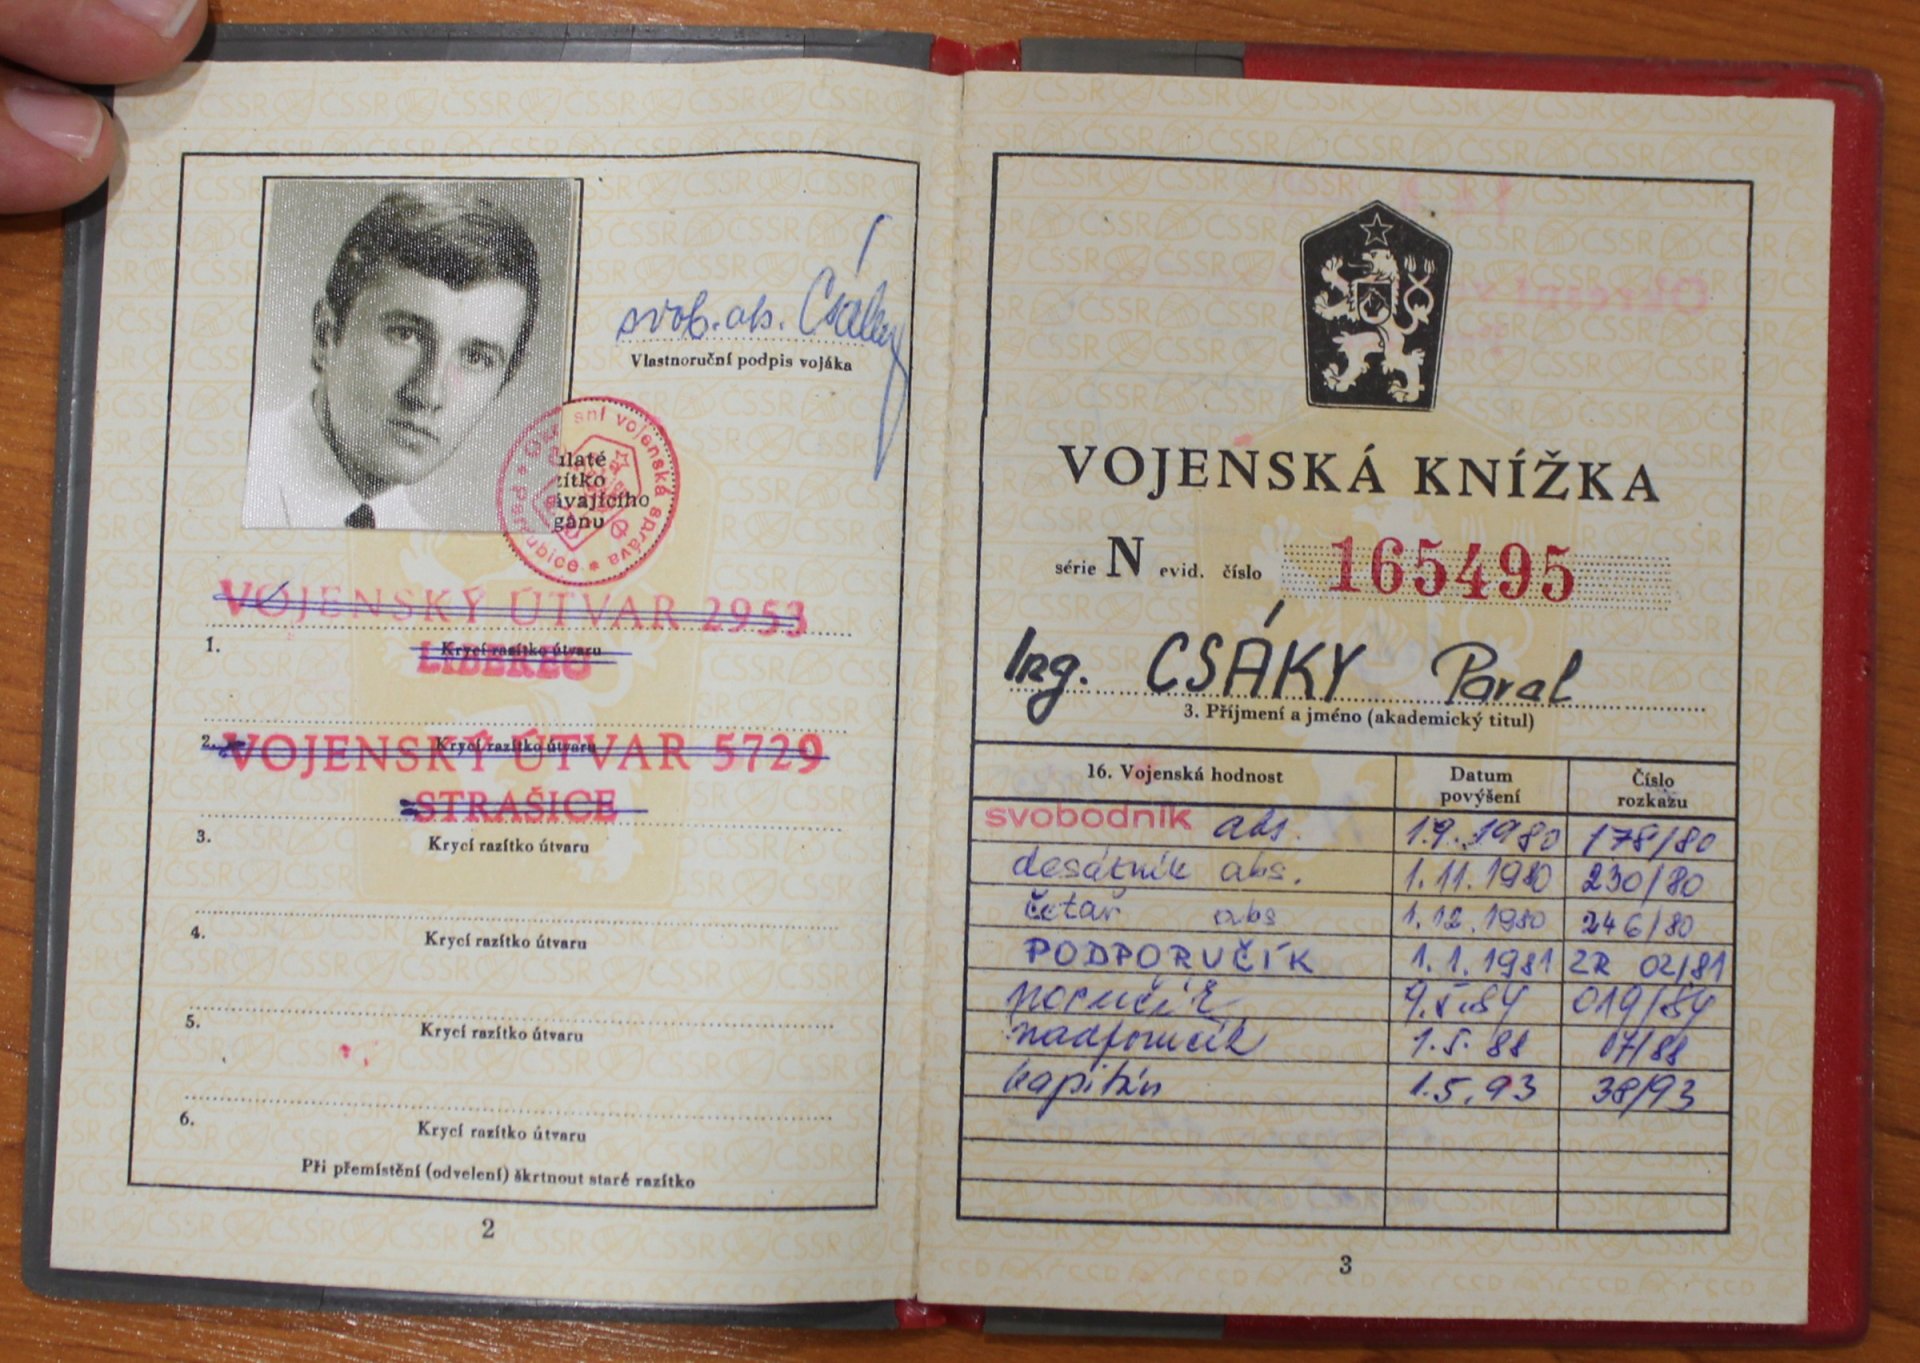 svob. abs. Csáky
Vlastnoruční podpis vojáka
Okresní vojenská správa * Pardubice *
ulaté
zítko
ávajícího
gánu
VOJENSKÝ ÚTVAR 2953
1. Krycí razítko útvaru
LIBEREC
2. Krycí razítko útvaru
VOJENSKÝ ÚTVAR 5729
STRAŠICE
3. Krycí razítko útvaru
4. Krycí razítko útvaru
5. Krycí razítko útvaru
6. Krycí razítko útvaru
Při přemístění (odvelení) škrtnout staré razítko
2
VOJENSKÁ KNÍŽKA
série N evid. číslo 165495
Ing. CSÁKY Pavel
3. Příjmení a jméno (akademický titul)
16. Vojenská hodnost Datum povýšení Číslo rozkazu
svobodník abs. 1.9.1980 178/80
desátník abs. 1.11.1980 230/80
četař abs 1.12.1980 246/80
PODPORUČÍK 1.1.1981 ZR 02/81
poručík 9.5.84 019/84
nadporučík 1.5.88 07/88
kapitán 1.5.93 38/93
3